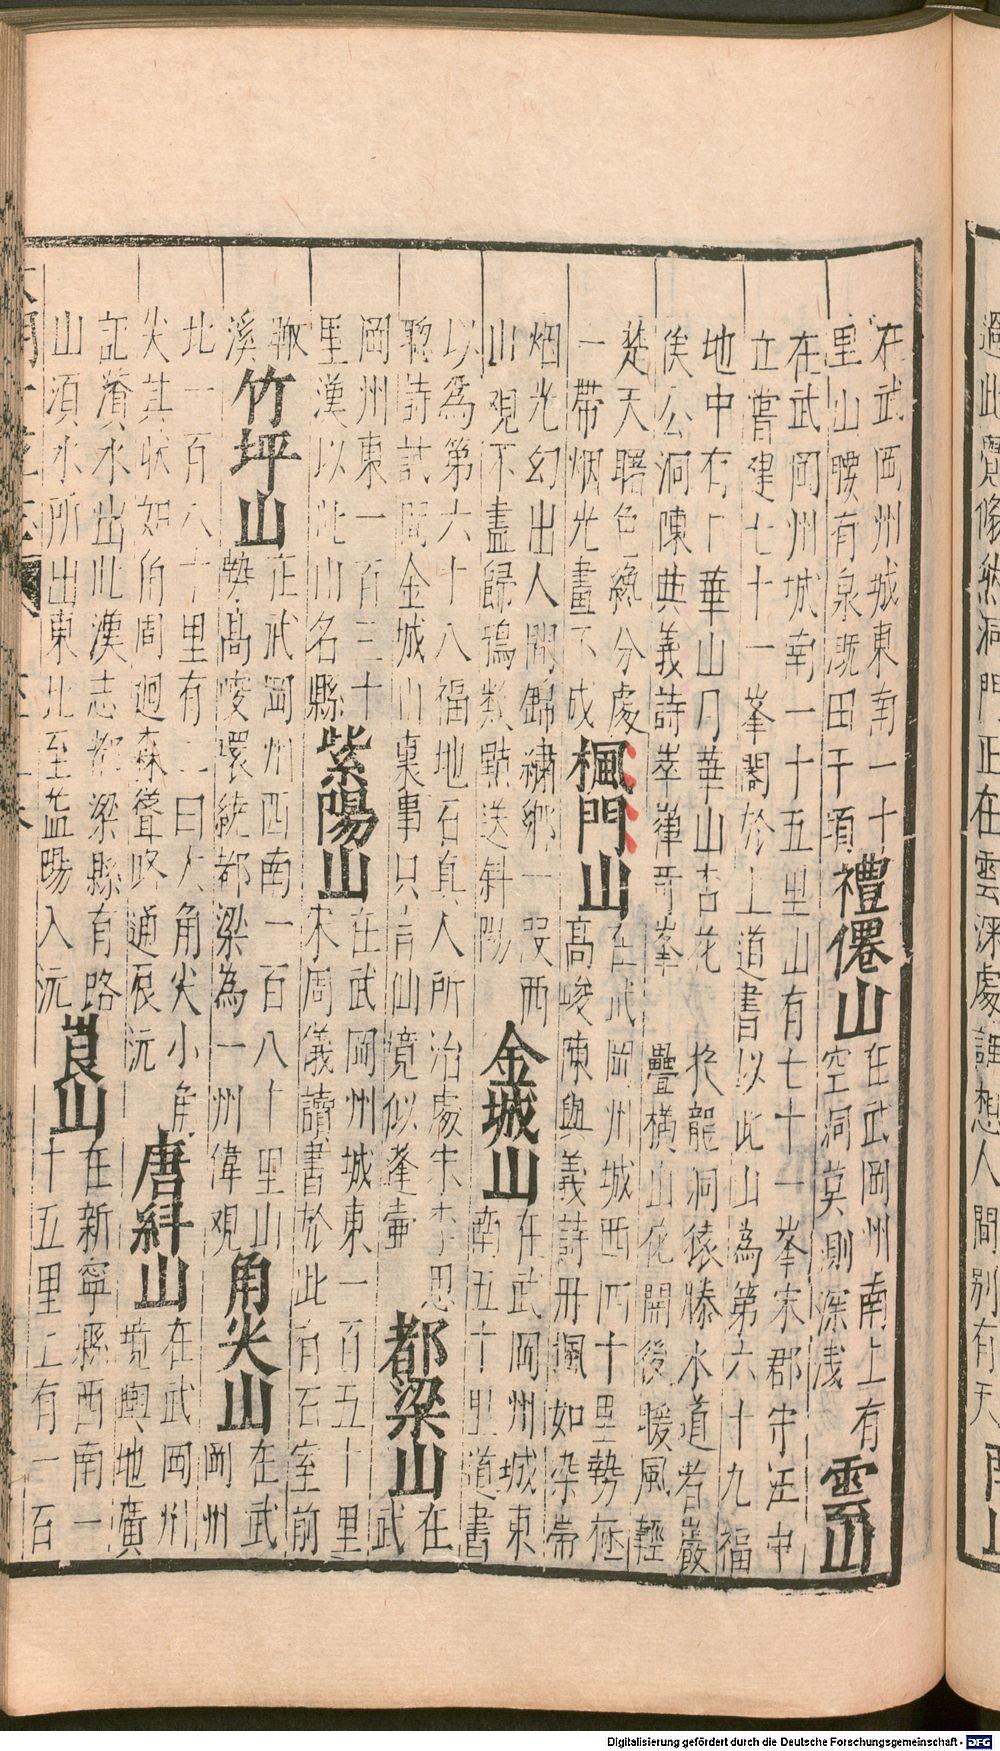 在武岡州城東南一十
里山腰有泉旣田千頃
禮僊山
在武岡州南上有
空洞莫測深浅
雲山
在武岡州城南一十五里山有七十一峯宋郡守汪中
立嘗建七十一峯閣於上道書以此山為第六十九福
地中有日華山月華山杏花龍洞猿滕水道者巖
侯公洞陳典義詩崒嵂哥峯疊横山花開後暖風輕
楚天曙色纔分處
一帶烟光畫不成
楓門山
在武岡州城西四十里勢極
高峻陳與義詩丹楓如染帶
烟光幻出人間錦繡鄉一段西
山觀不盡歸鴉数點送斜陽
金城山
在武岡州城東
南五十里道書
以為第六十八福地石真人所治處宋李思
聦詩試問金城山裏事只言仙境似蓬壷
都梁山
在
武
岡州東一百三十
里漢以此山名縣
紫陽山
在武岡州城東一百五十里
宋周儀讀書於此有石室前
瞰
溪
竹坪山
在武岡州西南一百八十里山
勢高峻環繞都梁為一州偉觀
角尖山
在武
岡州
北一百八十里有二曰大角尖小角
尖其状如角周迴森聳略通沅
唐糾山
在武岡州
境輿地廣
記濱水出此漢志都梁縣有路
山湏水所出東北至益陽入沅
莨山
在新寧縣西南一
十五里上有一百
Digitalisierung gefördert durch die Deutsche Forschungsgemeinschaft - DFG